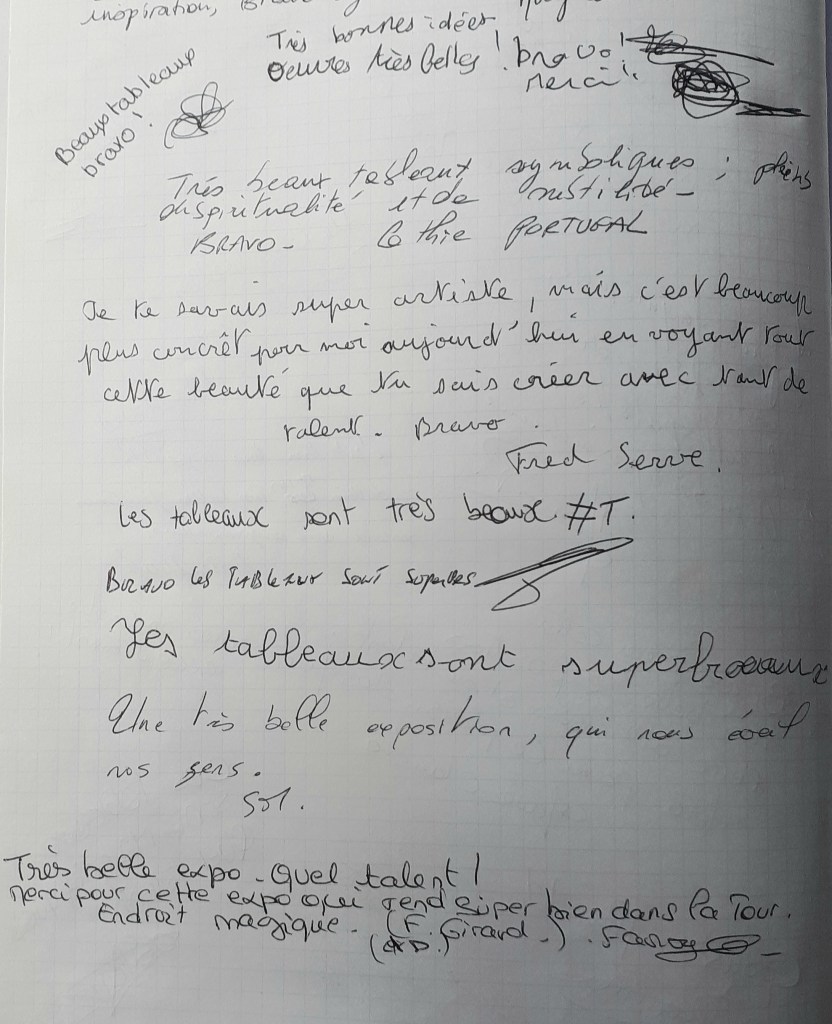 inspiration,
Très bonnes idées
oeuvres très belles ! bravo !
merci !
Beaux tableaux
bravo !
Très beaux tableaux symboliques ; pleins
de spiritualité et de
BRAVO - PORTUGAL
Je te savais super artiste, mais c'est beaucoup
plus concrêt pour moi aujourd'hui en voyant tout
cette beauté que tu sais créer avec tant de
talent. Bravo.
Fred Serve.
Les tableaux sont très beaux. #T.
BRAVO LES TABLEAUX SONT SUPERBES
Les tableaux sont super beaux
Une très belle exposition, qui nous
nos sens.
Sol.
Très belle expo - Quel talent !
Merci pour cette expo qui rend super bien dans la Tour.
Endroit magique. (F. Girard.)
(& D.)